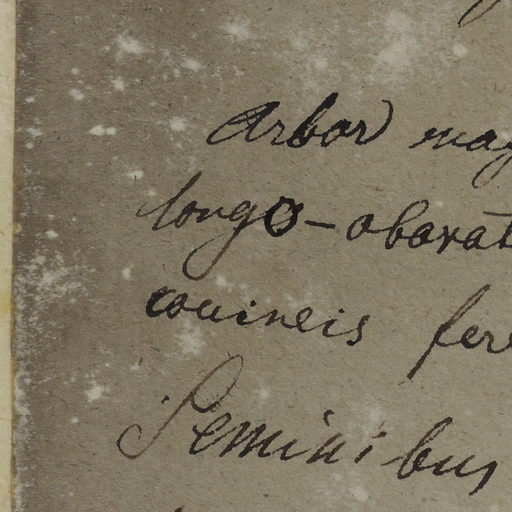 Arbor mag
longo-obovat
coccineis fer
Seminibus